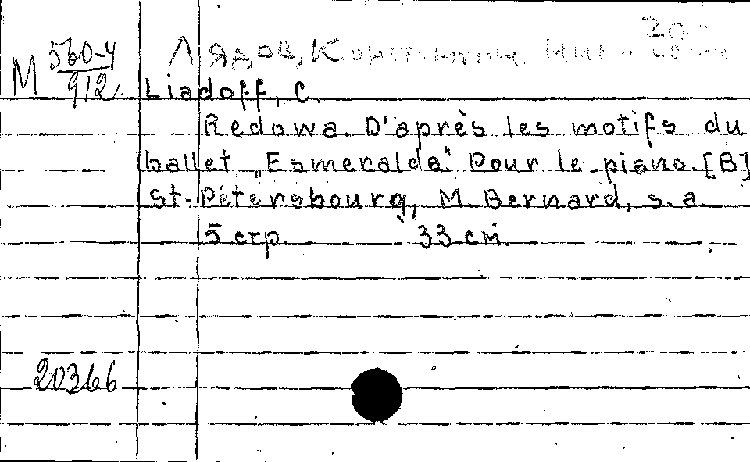 M 560-4/912
Лядов, Константин
Liadoff, C.
Redowa. D'après les motifs du
ballet „Esmeralda“ Pour le piano. [B]
St.-Pétersbourg, M. Bernard, s. a.
5 стр. 33 см.
20366